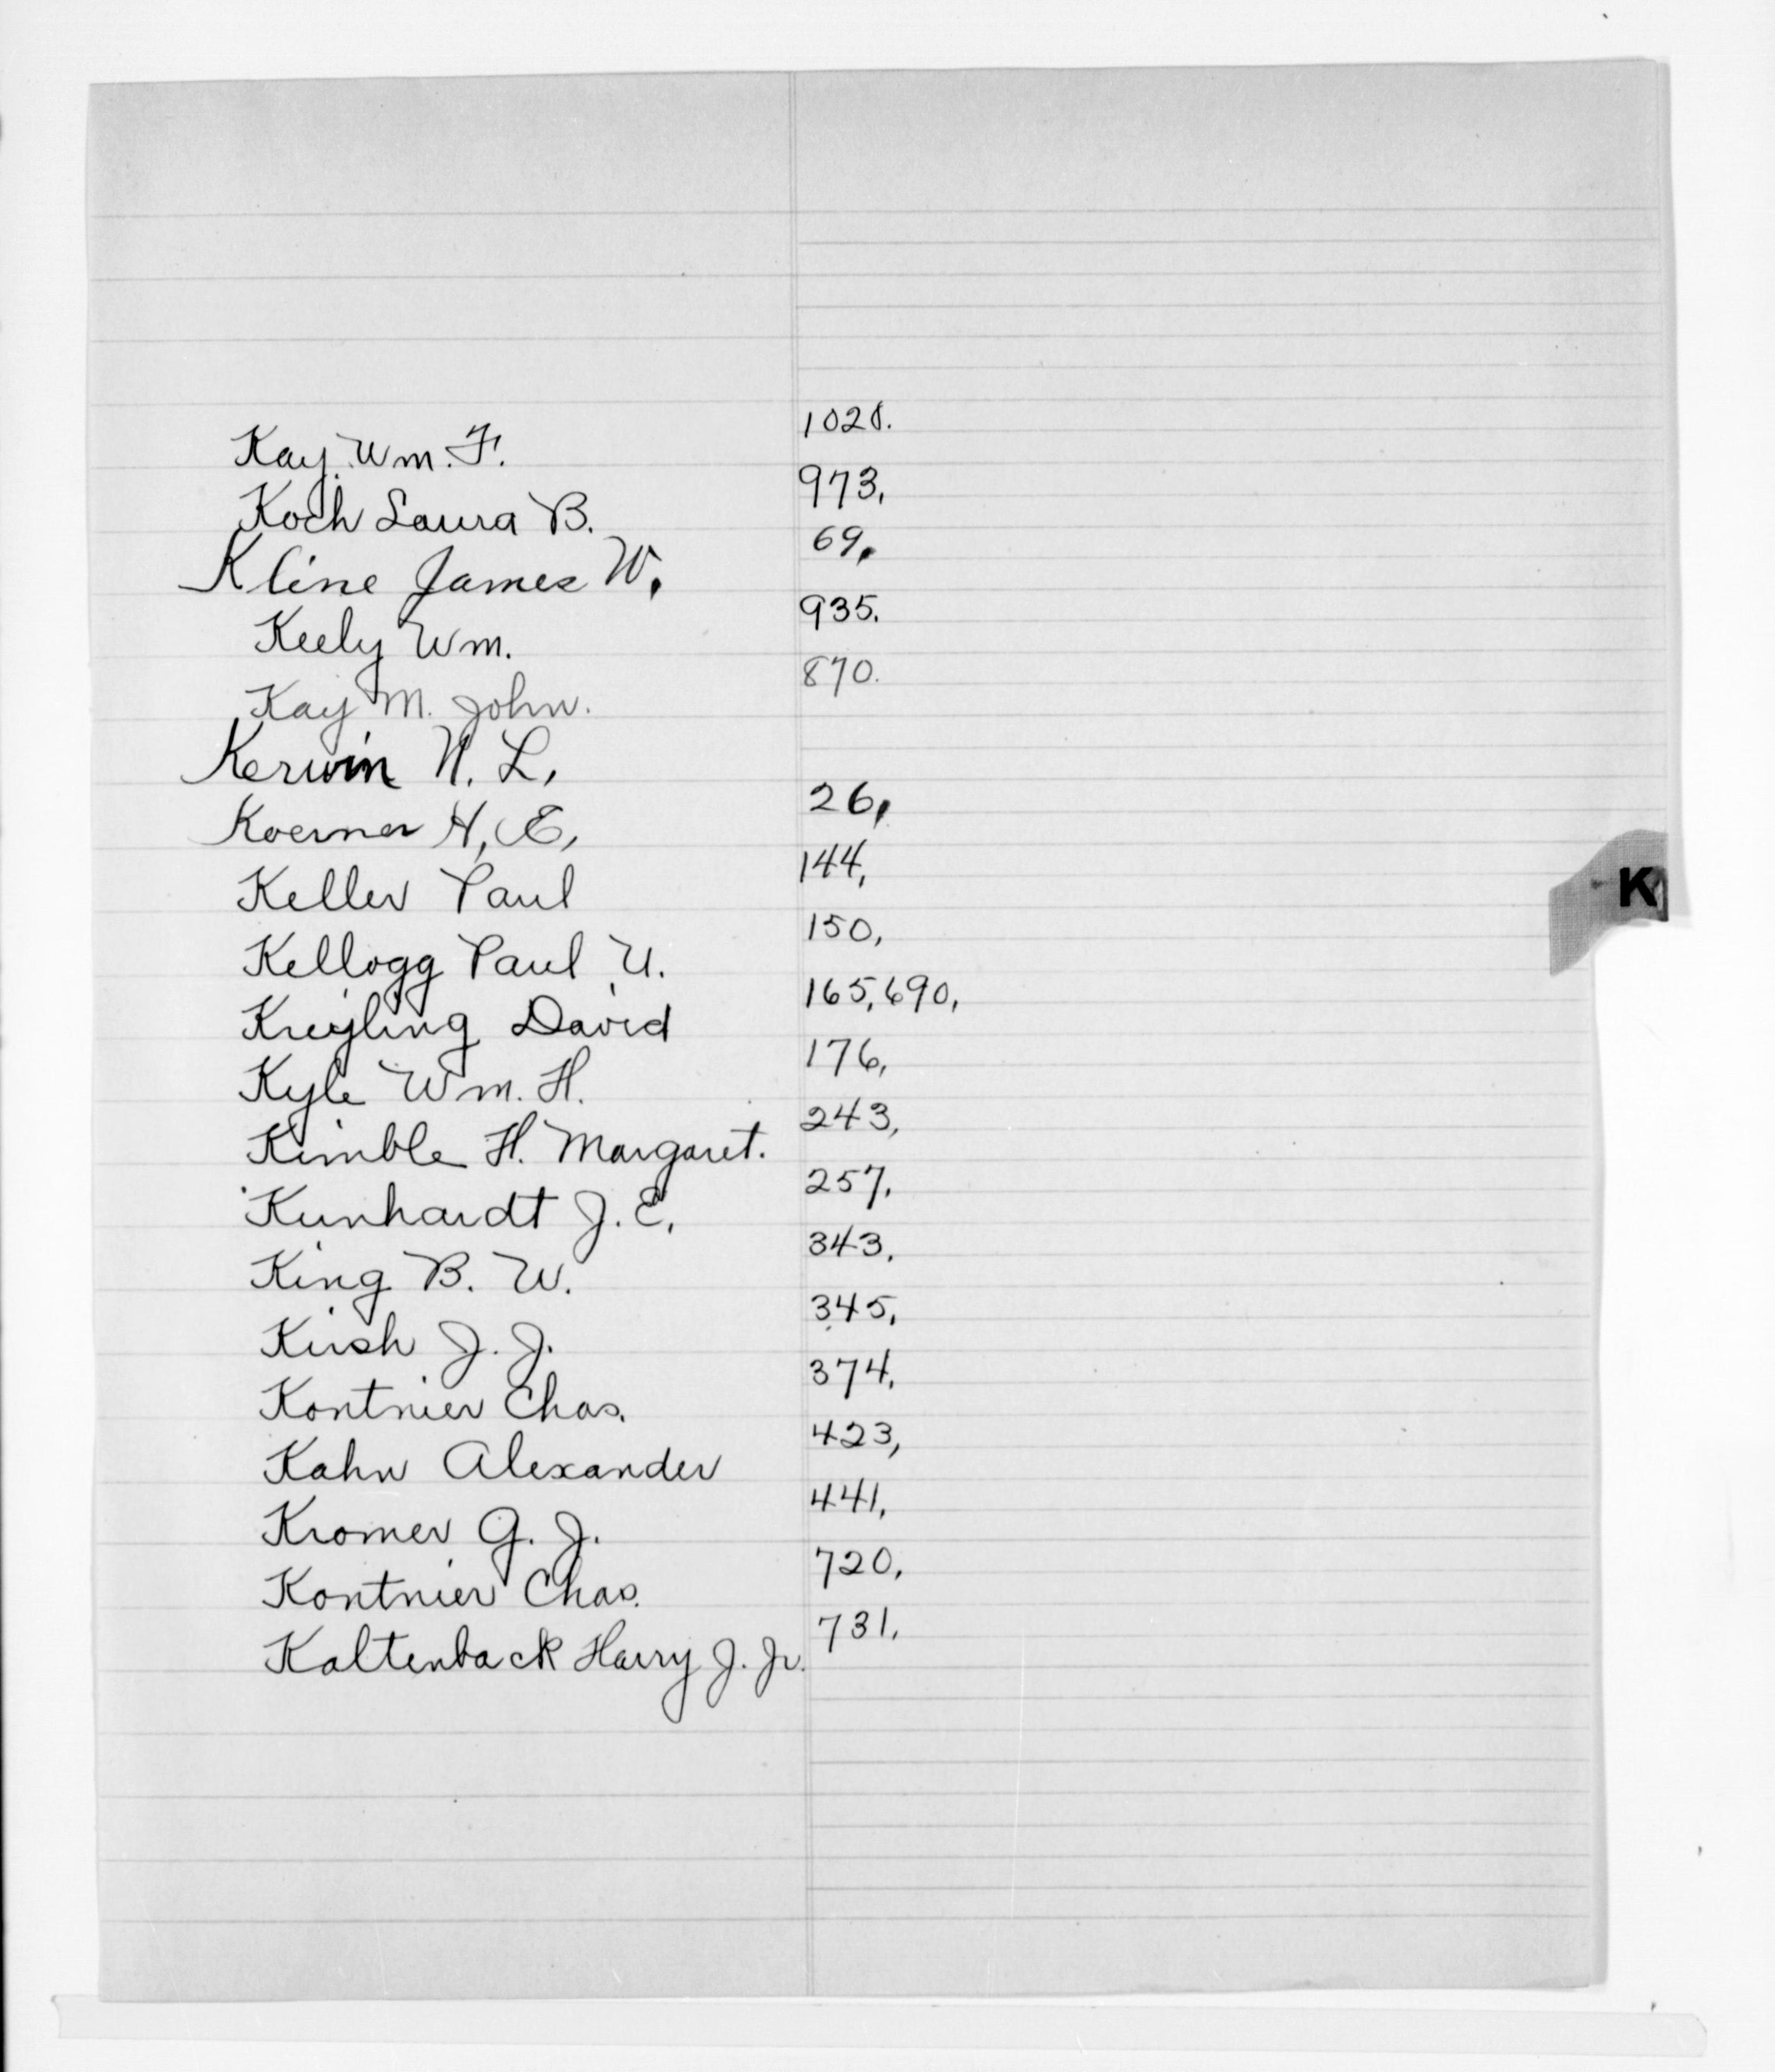 Kay Wm. F. 1028.
Koch Laura B. 973,
Kline James W. 69,
Keely Wm. 935.
Kay M. John. 870.
Kerwin H. L,
Koerner H, E, 26,
Keller Paul 144,
Kellogg Paul U. 150,
Kreyling David 165, 690,
Kyle Wm. H. 176,
Kimble H. Margaret. 243,
Kunhardt J. E, 257,
King B. W. 343.
Kirsh J. J. 345,
Kontnier Chas. 374,
Kahn Alexander 423,
Kromer G. J. 441,
Kontnier Chas. 720,
Kaltenback Harry J. Jr. 731,
K